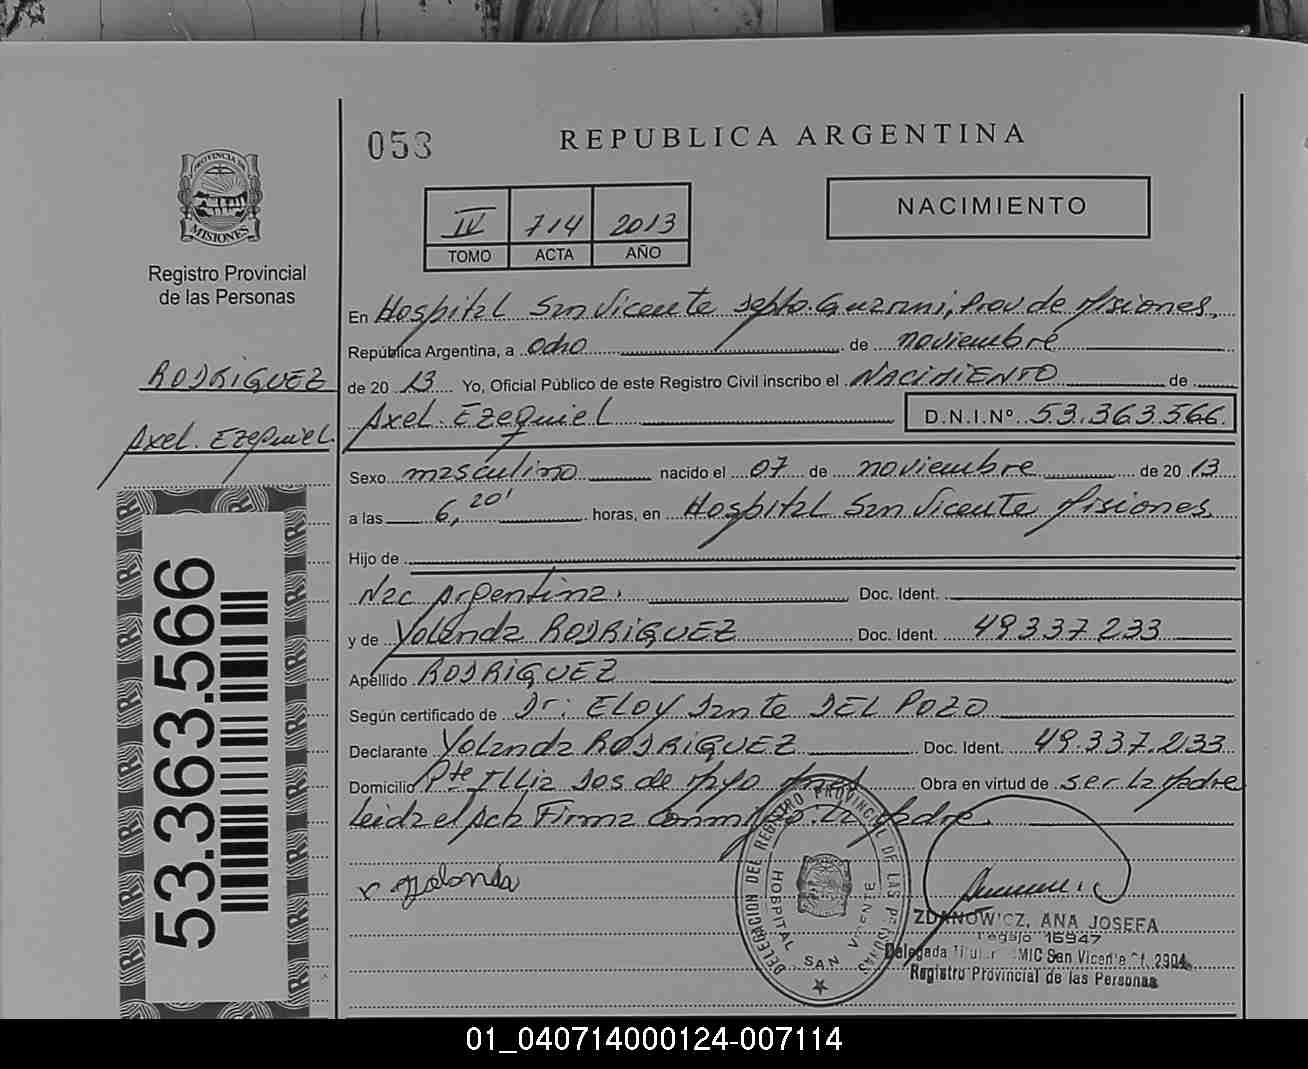 053
REPUBLICA ARGENTINA
PROVINCIA DE
MISIONES
Registro Provincial
de las Personas
IV 714 2013
TOMO ACTA AÑO
NACIMIENTO
RODRIGUEZ
Axel. Ezequiel.
53.363.566
En Hospital San Vicente Depto. Guarani, Prov. de Misiones,
República Argentina, a ocho de noviembre
de 20 13 Yo, Oficial Público de este Registro Civil inscribo el NACIMIENTO de
Axel. Ezequiel D.N.I.Nº 53.363.566.
Sexo masculino nacido el 07 de noviembre de 20 13
a las 6,20' horas, en Hospital San Vicente, Misiones.
Hijo de
Nac Argentina. Doc. Ident.
y de Yolanda RODRIGUEZ Doc. Ident. 49337233
Apellido RODRIGUEZ
Según certificado de Dr. ELOY Dante DEL POZO
Declarante Yolanda RODRIGUEZ Doc. Ident. 49.337.233
Domicilio Pte Illia Dos de Mayo Obra en virtud de ser la Madre
Leida el Acta Firma Conmigo. La Madre.
x Yolanda
DELEGACION DEL REGISTRO PROVINCIAL DE LAS PERSONAS
HOSPITAL SAN VICENTE
ZDANOWICZ, ANA JOSEFA
Legajo 16947
Delegada Titular MIC San Vicente Of. 2904
Registro Provincial de las Personas
01_040714000124-007114